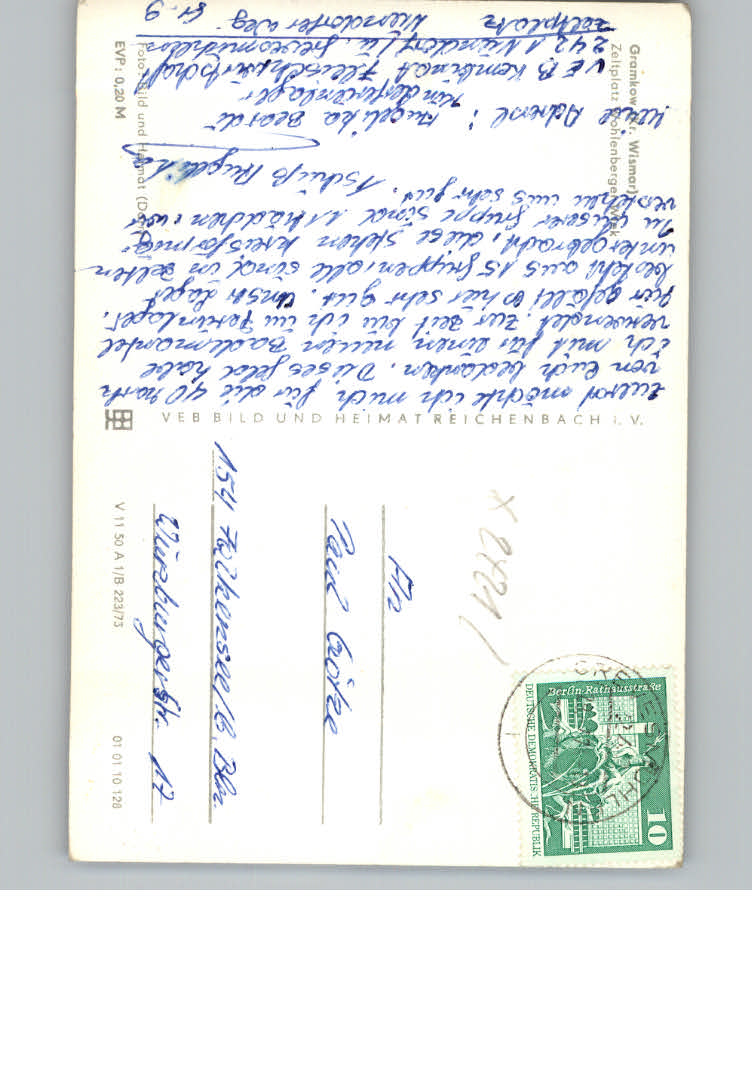 Gramkow (Kr. Wismar)
Zeltplatz Wohlenberger Wiek
Zuerst möchte ich mich für die 40 Mark
von Euch bedanken. Dieses Geld habe
ich mit für einen neuen Bademantel
verwendet. Zur Zeit bin ich im Ferienlager.
Hier gefällt es hier sehr gut. Unser Lager
besteht aus 15 Gruppen, alle sind in Zelten
untergebracht, diese stehen kreisförmig.
In unserer Gruppe sind 11 Mädchen, wir
verstehen uns sehr gut.
Tschüß Angelika
Meine Adresse: Angelika
Kinderferienlager
VEB Kombinat Fleischwirtschaft
242
Zeltplatz
Foto: Bild und Heimat
EVP: 0,20 M
VEB BILD UND HEIMAT REICHENBACH i. V.
V 11 50 A 1/B 223/73
01 01 10 128
An
Paul Götze
154 Falkensee b. Bln.
Würzburger Str. 17
x 2421
Berlin-Rathausstraße
DEUTSCHE DEMOKRATISCHE REPUBLIK
10